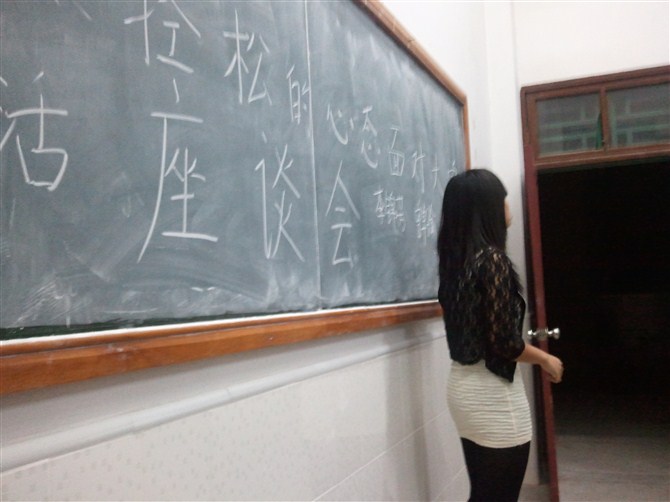 轻松的心态面对大
活 座谈会